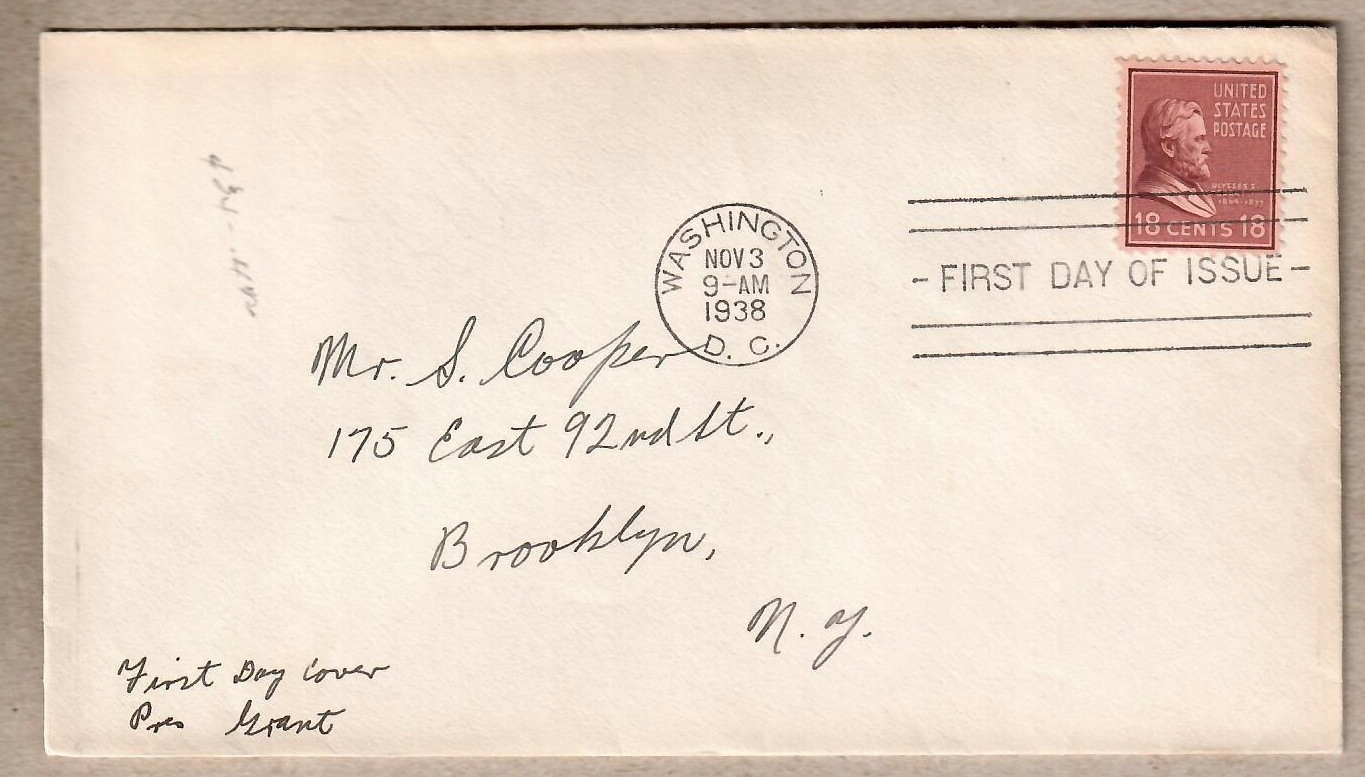 UNITED
STATES
POSTAGE
ULYSSES S.
1869-1877
18 CENTS 18
WASHINGTON
NOV 3
9-AM
1938
D. C.
- FIRST DAY OF ISSUE -
Mr. S. Cooper
175 East 92nd St.,
Brooklyn,
N. Y.
First Day Cover
Pres Grant